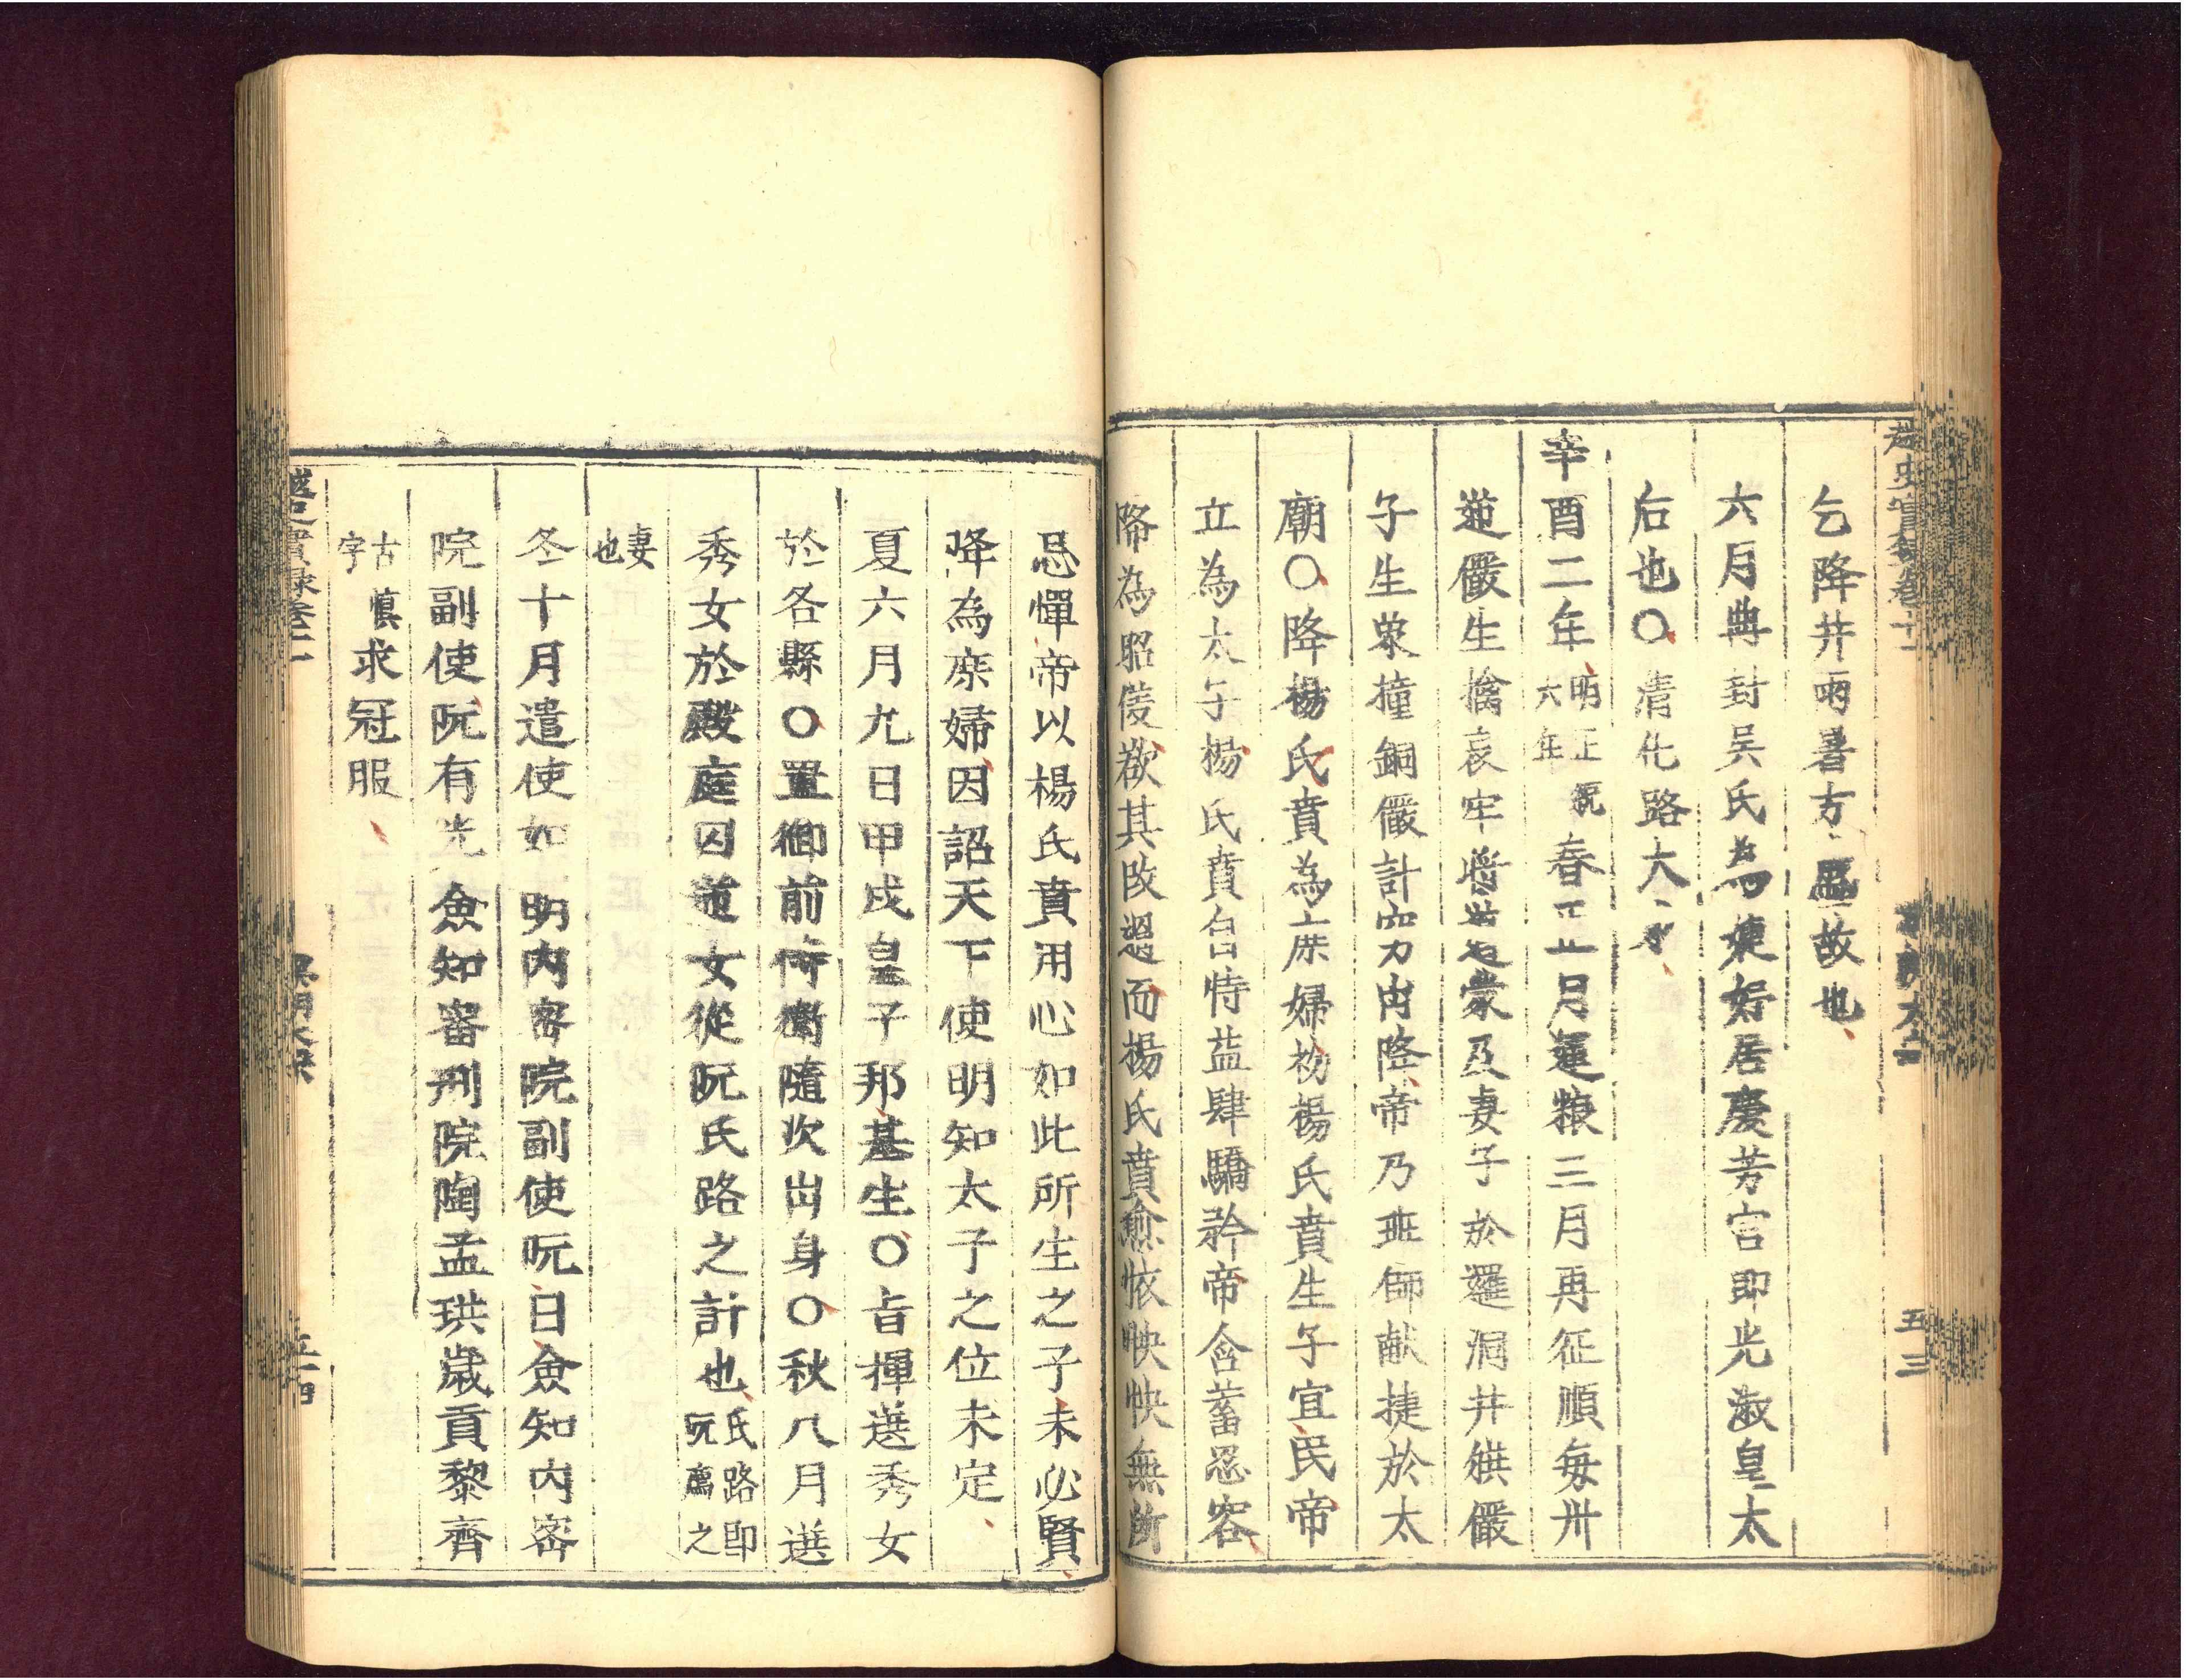 乞降并雨暑方
故也
六月典封吳氏為婕妤居慶芳宮即光淑皇太
后也〇清化路大
辛酉二年明正統六年春正月運粮三月再征順毎卅
道儼生擒哀牢將
蒙及妻子於邏洞井烘儼
子生衆撞銅儼計
力出降帝乃班師献捷於太
廟〇降楊氏賁為庶婦初楊氏賁生子宜民帝
立為太子楊氏賁自恃益肆驕矜帝含蓄忍容
降為昭儀欲其改過而楊氏賁愈怏怏無所
忌憚帝以楊氏賁用心如此所生之子未必賢
降為庶婦因詔天下使明知太子之位未定
夏六月九日甲戌皇子邦基生〇旨揮選秀女
於各縣〇置御前侍衛隨次出身〇秋八月選
秀女於殿庭囚
女從阮氏路之計也氏路即阮廌之
妻也
冬十月遣使如明内密院副使阮日僉知内密
院副使阮有光僉知審刑院陶孟珙歲貢黎齊
古慎字求冠服
越史實録卷十一
五十三
五十四